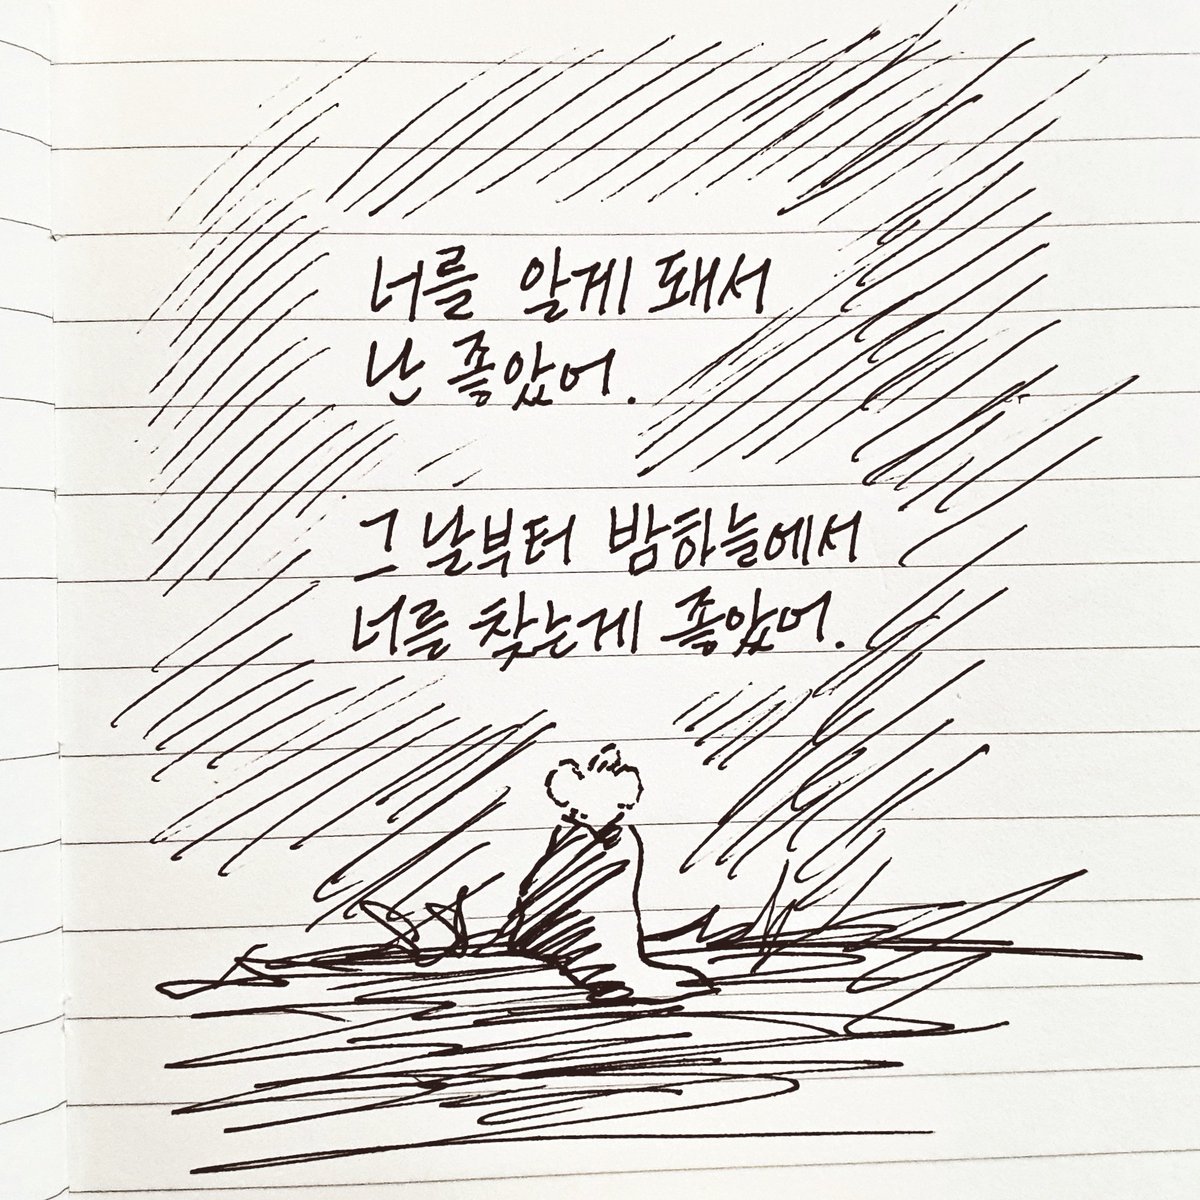 너를 알게 돼서
난 좋았어.
그날부터 밤하늘에서
너를 찾는게 좋았어.